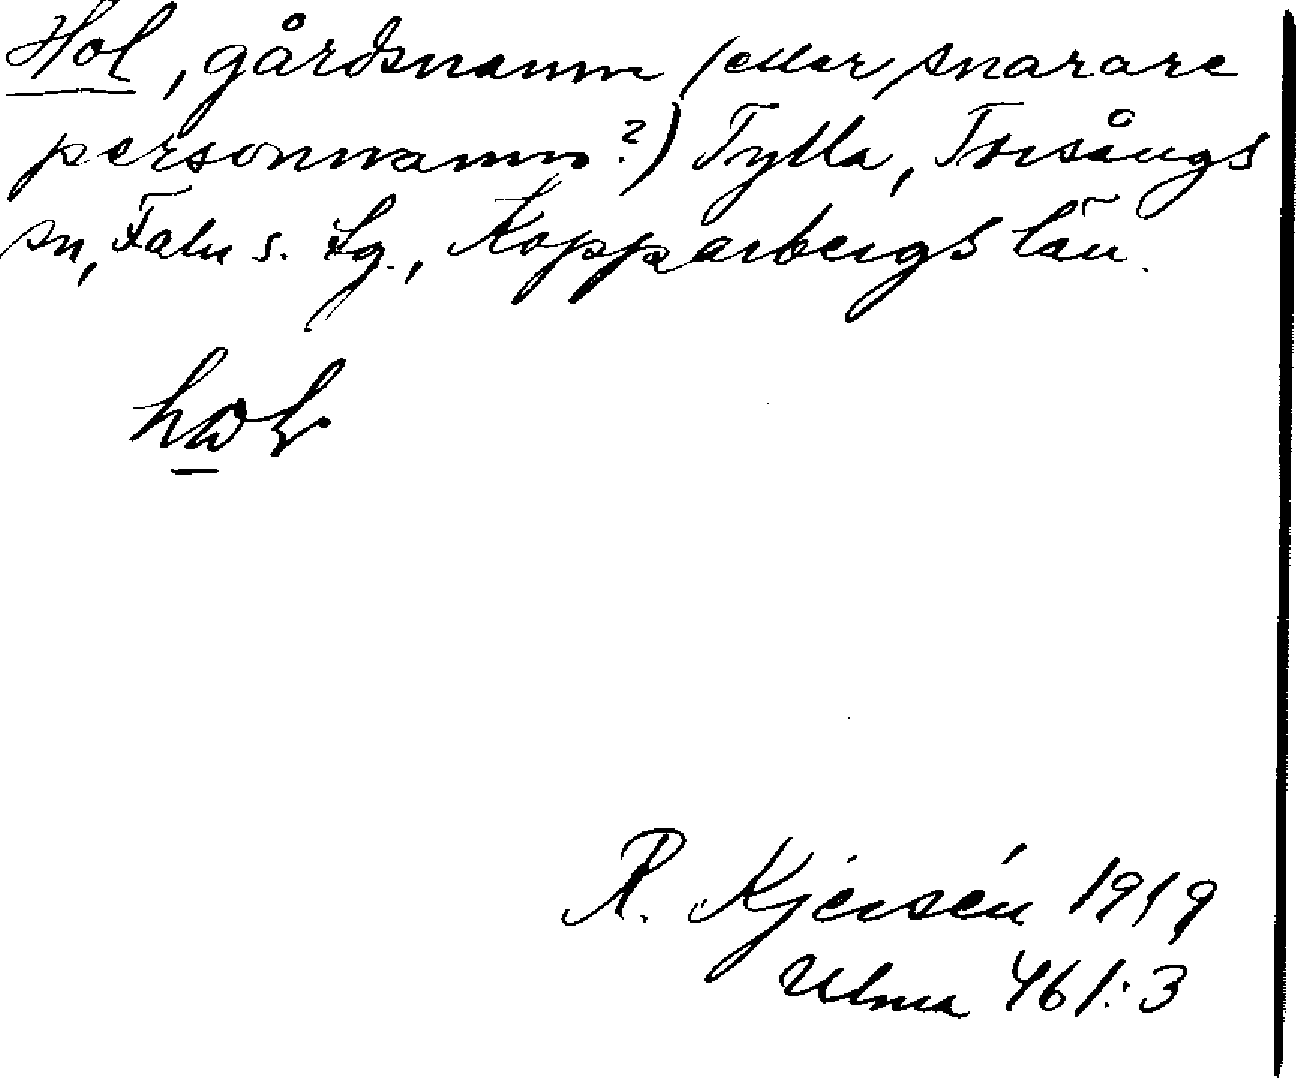 Hol, gårdsnamn (eller snarare
personnamn?) Tylla, Torsångs
sn, Falu s. fg., Kopparbergs län.
R. Kjersén 1919
Ulma 461:3